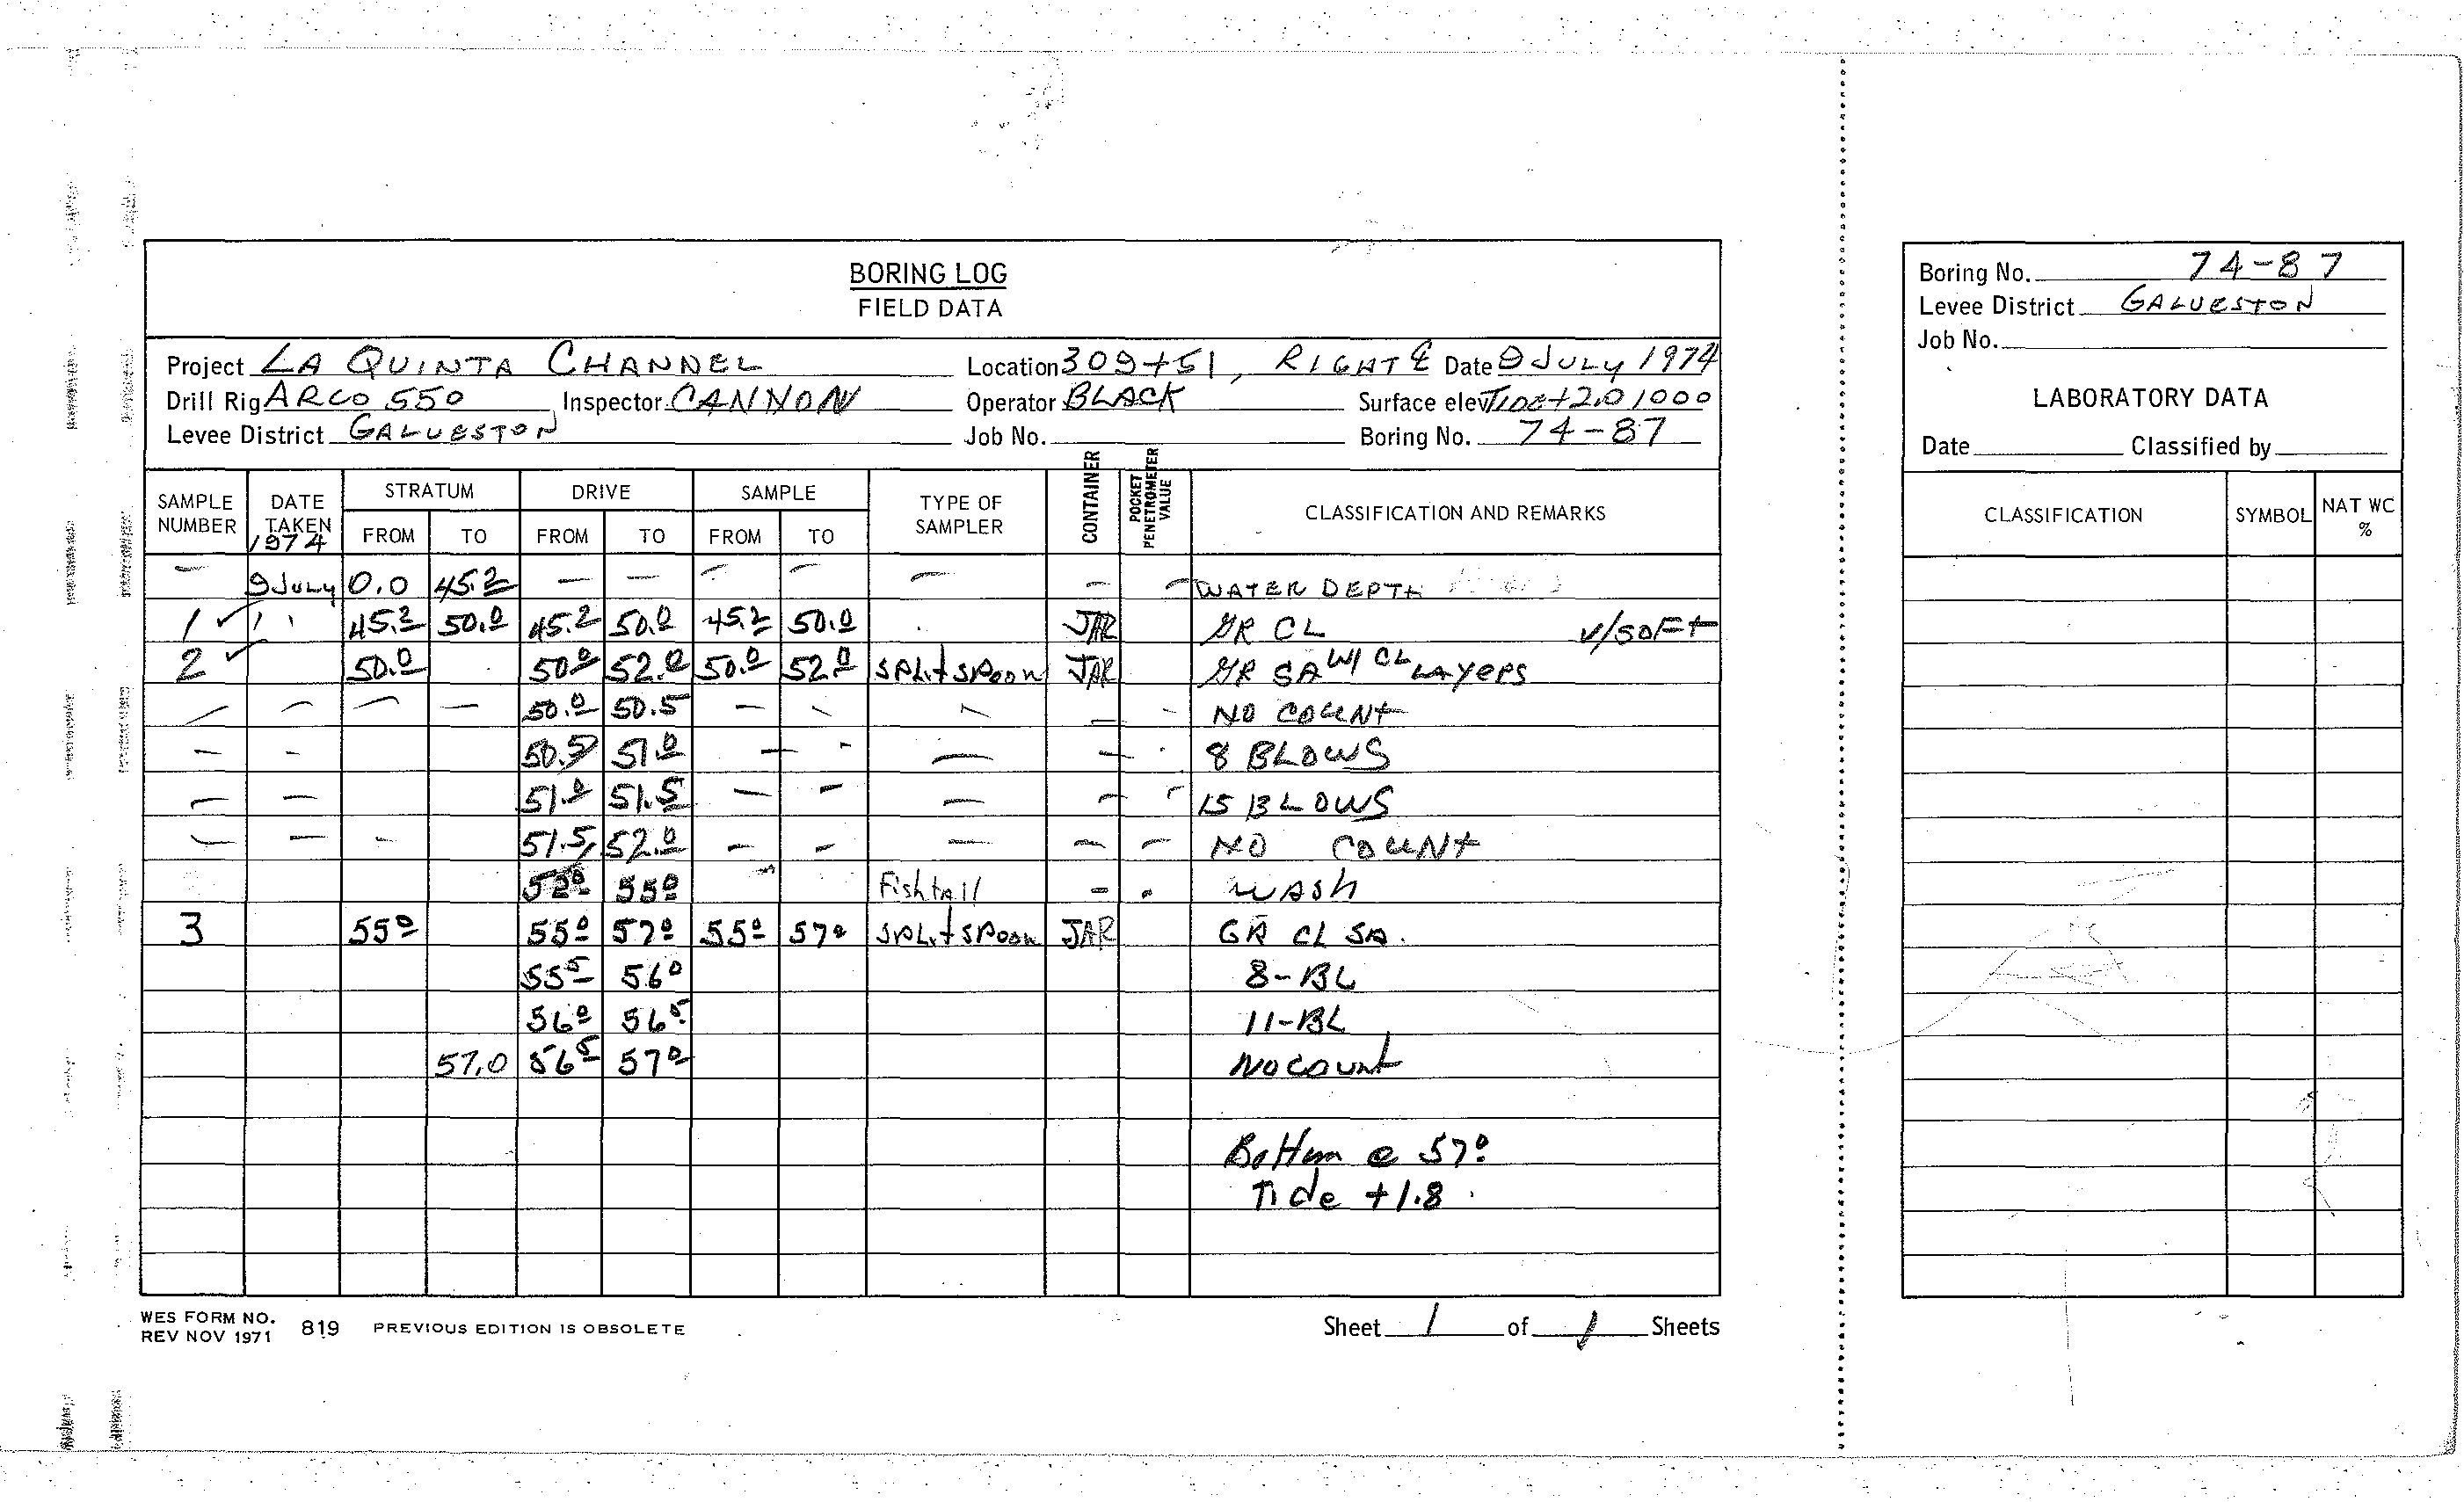 BORING LOG
FIELD DATA
Project LA QUINTA CHANNEL Location 309+51, RIGHT ℄ Date 9 JULY 1974
Drill Rig ARCO 550 Inspector CANNON Operator BLACK Surface elev TIDE +2.0 1000
Levee District GALVESTON Job No. Boring No. 74-87
SAMPLE NUMBER DATE TAKEN 1974 STRATUM FROM TO DRIVE FROM TO SAMPLE FROM TO TYPE OF SAMPLER CONTAINER POCKET PENETROMETER VALUE CLASSIFICATION AND REMARKS
— 9 JULY 0.0 45.2 — — — — — — — WATER DEPTH
1 ✓ '' 45.2 50.0 45.2 50.0 45.2 50.0 JAR GR CL v/SOFT
2 ✓ 50.0 50.0 52.0 50.0 52.0 SPLIT SPOON JAR GR SA W/ CL LAYERS
— — — — 50.0 50.5 — — — — — NO COUNT
— — 50.5 51.0 — — — — - 8 BLOWS
— — 51.0 51.5 — — — — — 15 BLOWS
— — — 51.5 52.0 — — — — — NO COUNT
52.0 55.0 Fishtail — - WASH
3 55.0 55.0 57.0 55.0 57.0 SPLIT SPOON JAR GR CL SA.
55.5 56.0 8-BL
56.0 56.5 11-BL
57.0 56.5 57.0 NO COUNT
Bottom @ 57.0
Tide +1.8
WES FORM NO. 819 PREVIOUS EDITION IS OBSOLETE
REV NOV 1971
Sheet 1 of 1 Sheets
Boring No. 74-87
Levee District GALVESTON
Job No.
LABORATORY DATA
Date Classified by
CLASSIFICATION SYMBOL NAT WC %